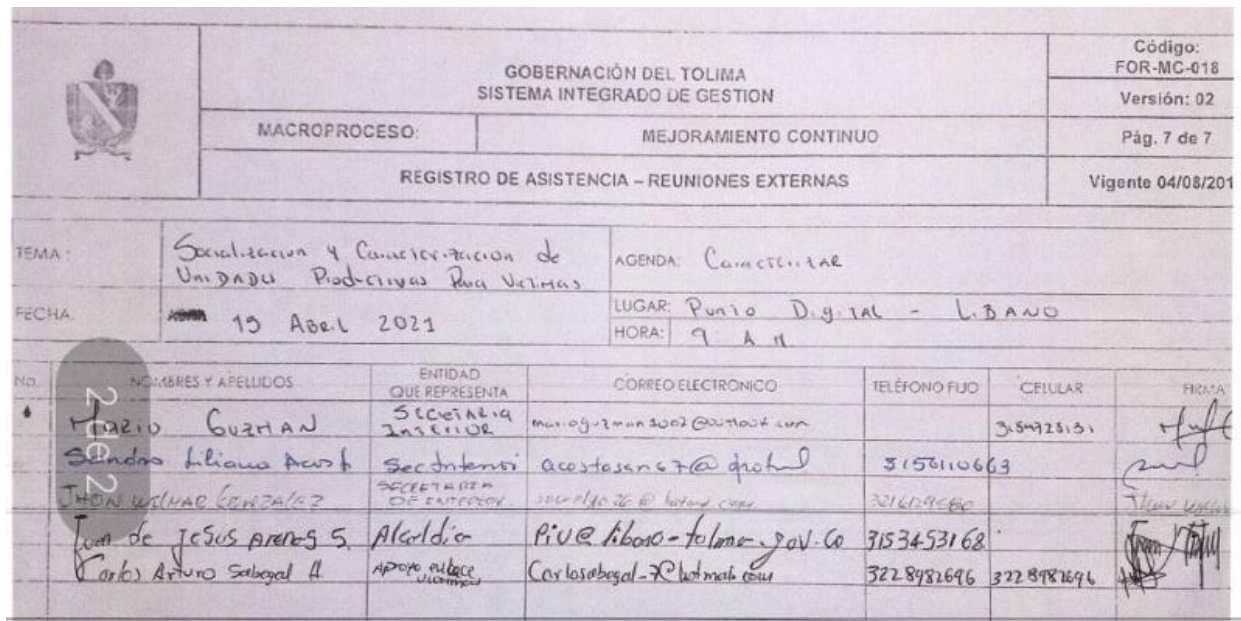 GOBERNACIÓN DEL TOLIMA
SISTEMA INTEGRADO DE GESTION
Código:
FOR-MC-018
Versión: 02
MACROPROCESO: MEJORAMIENTO CONTINUO
Pág. 7 de 7
REGISTRO DE ASISTENCIA – REUNIONES EXTERNAS
Vigente 04/08/201
TEMA: Socialización y Caracterización de
Unidades Productivas Para Victimas
AGENDA: Caracterizar
FECHA. 15 Abril 2021
LUGAR: Punto Digital - LIBANO
HORA: 9 AM
No. NOMBRES Y APELLIDOS ENTIDAD QUE REPRESENTA CORREO ELECTRONICO TELÉFONO FIJO CELULAR FIRMA
Mario GUZMAN Secretaria Interior
Sandra Liliana Acosta Sec Interior 3156110663
JHON WILMAR GONZALEZ SECRETARIA DE INTERIOR
de Jesus Arenas S. Alcaldia 3153453168
Carlos Arturo Sabogal A. Apoyo enlace victimas 3228982696 3228982696
2 de 2